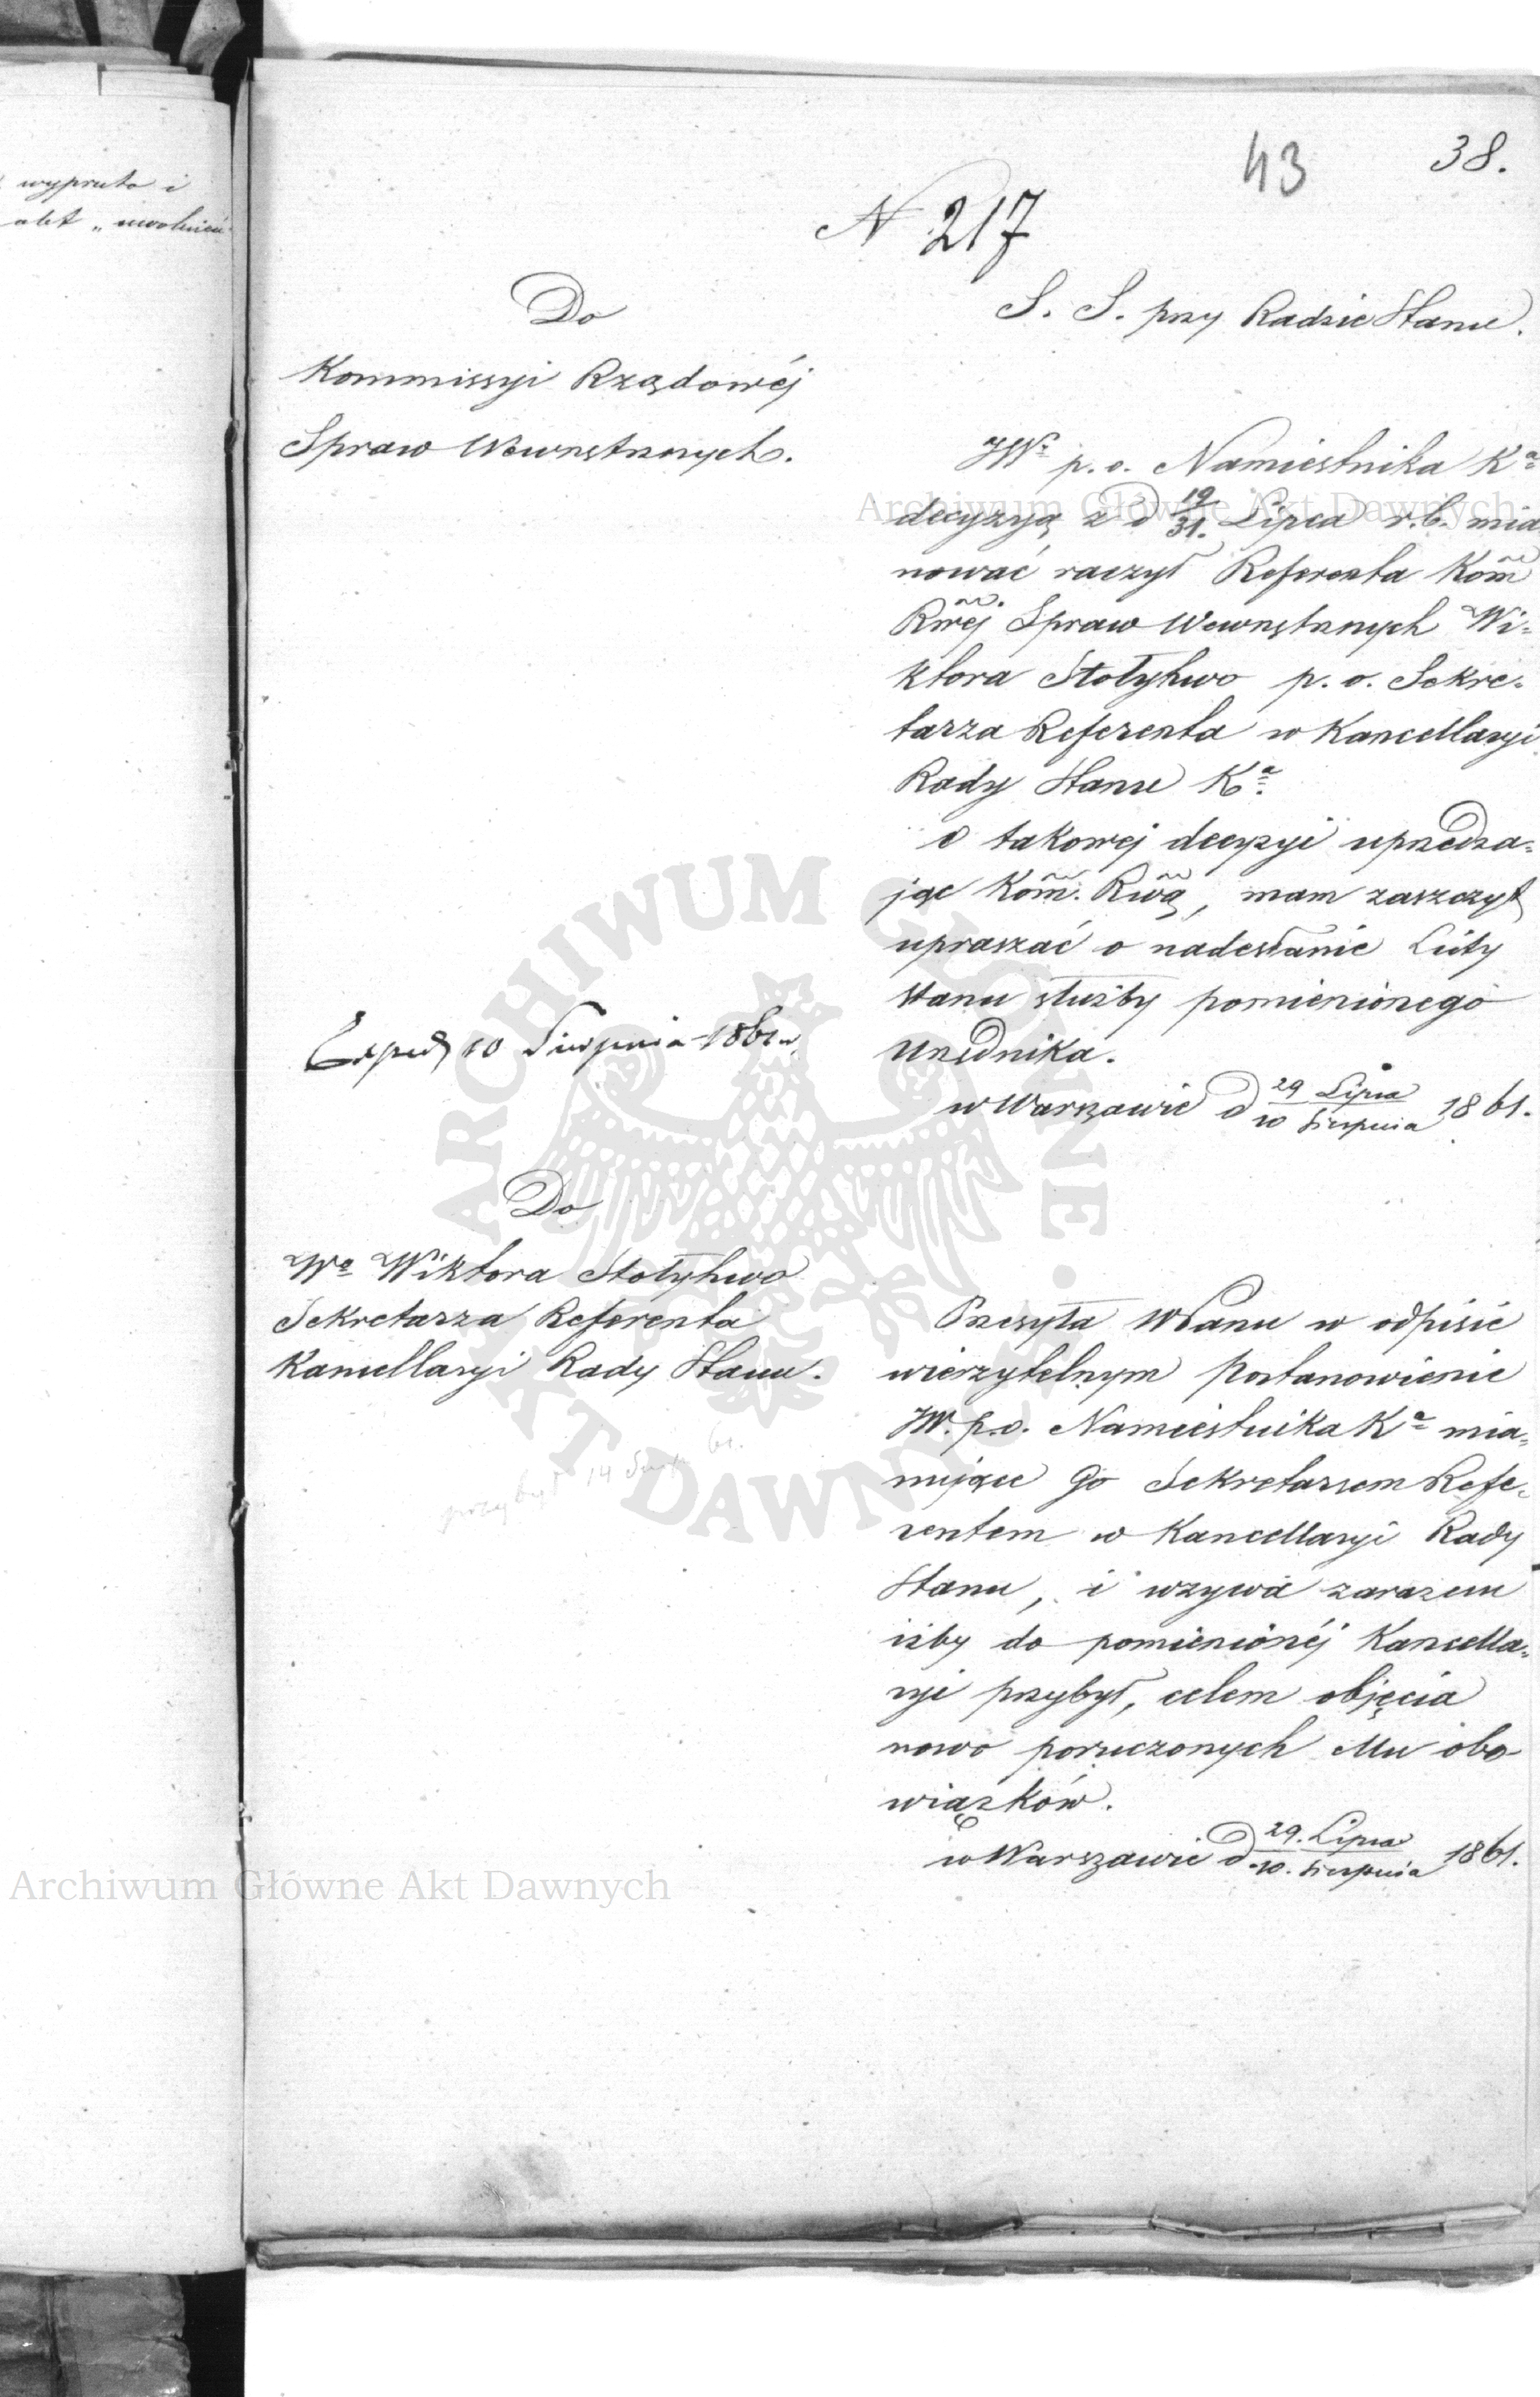 wypruto i
akt „ uwolnień
43
38.
N 217
Do
Kommissyi Rządowéj
Spraw Wewnętrznych.
S. S. przy Radzie Stanu.
JWy p. o. Namiestnika Ka
decyzyą z d 19/31. Lipca r. b. mia
nować raczył Referenta Kom̃
Rwéj Spraw Wewnętrznych Wi-
ktora Stołyhwo p. o. Sekre-
tarza Referenta w Kancellaryi
Rady Stanu Ka.
O takowej decyzyi uprzedza-
jąc Kom̃. Rwą, mam zaszczyt
upraszać o nadesłanie Listy
stanu służby pomienionego
Urzędnika.
w Warszawie d 29 Lipca/10 Sierpnia 1861.
Exped 10 Sierpnia 1861 r.
Do
Wo Wiktora Stołyhwo
Sekretarza Referenta
Kancellaryi Rady Stanu.
przybył 14 Sierp 61.
Przesyła WPanu w odpisie
wierzytelnym Postanowienie
JW. p. o. Namiestnika Ka mia-
nujące Go Sekretarzem Refe-
rentem w Kancellaryi Rady
Stanu, i wzywa zarazem
iżby do pomienionéj Kancella-
ryi przybył, celem objęcia
nowo poruczonych Mu obo-
wiązków.
w Warszawie d. 29. Lipca/10. Sierpnia 1861.
Archiwum Główne Akt Dawnych
Archiwum Główne Akt Dawnych
ARCHIWUM GŁÓWNE · AKT DAWNYCH